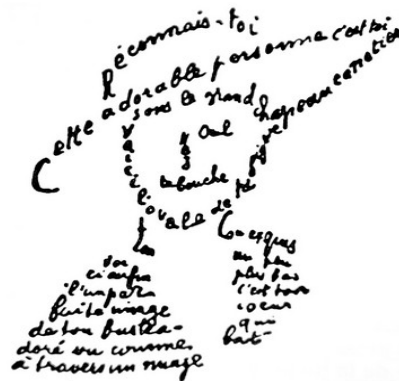 Reconnais-toi
Cette adorable personne c'est toi
sous le grand chapeau canotier
Œil
Nez
La bouche
Voici l'ovale de ta figure
Ton
Cou exquis
Voi
ci enfin
l'impar
faite image
de ton buste a-
doré vu comme
à travers un nuage
un peu
plus bas
c'est ton
cœur
qui
bat